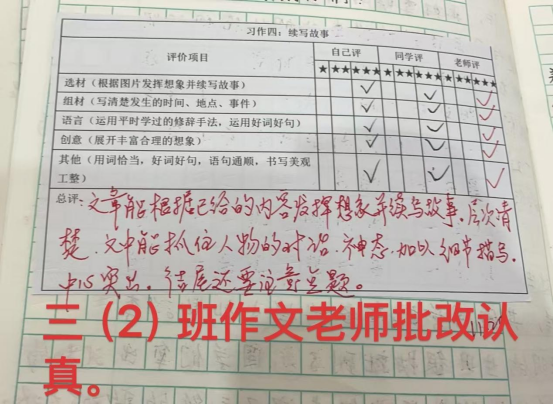 习作四：续写故事
评价项目 自己评 同学评 老师评
★★★★★★ ★★★★★★ ★★★★★
选材（根据图片发挥想象并续写故事）
组材（写清楚发生的时间、地点、事件）
语言（运用平时学过的修辞手法，运用好词好句）
创意（展开丰富合理的想象）
其他（用词恰当，好词好句，语句通顺，书写美观
工整）
总评：文章能根据已给的内容发挥想象并续写故事，层次清
楚，文中能抓住人物的对话、神态，加以细节描写，
中心突出，结尾还要注意点题。
三（2）班作文老师批改认
真。